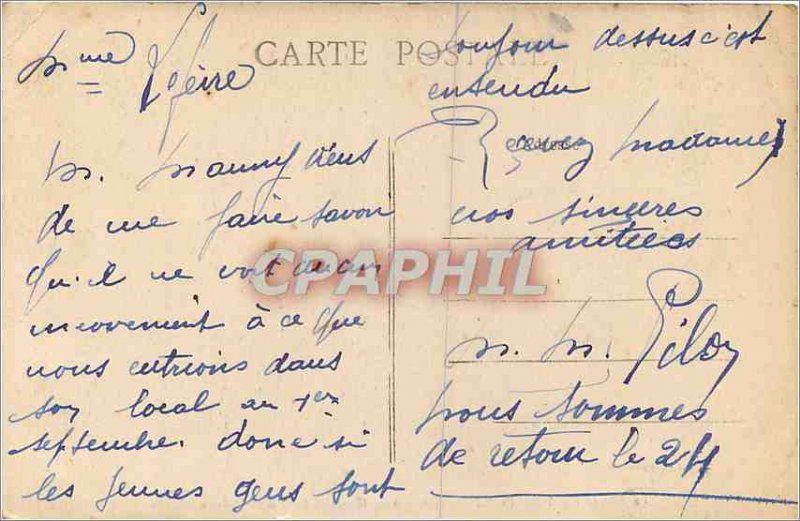 Mme
CARTE POSTALE
M. Mauny viens
de me faire savoir
qu'il ne voit aucun
inconvenient à ce que
nous entrions dans
son local au 1er
septembre. donc si
les jeunes gens sont
toujour dessus c'est
entendu
Recevez Madame
nos sinceres
amitiées
M. M.
nous sommes
de retour le 24
CPAPHIL